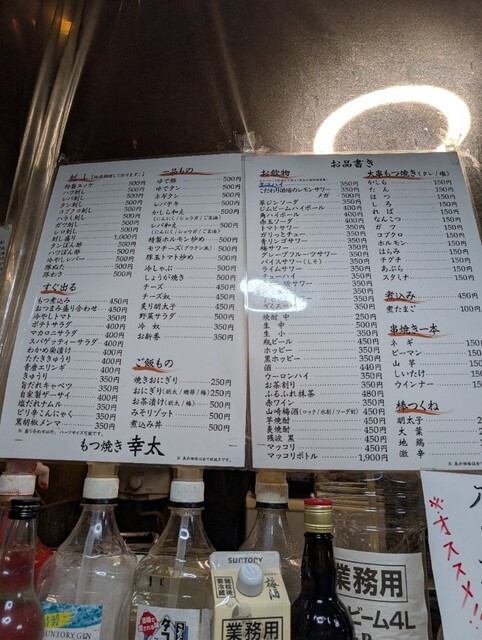 刺し
特製ユッケ 500円
ハツ刺し 500円
レバ刺し 500円
タン刺し 500円
コブクロ刺し 500円
ハラミ刺し 500円
ガツ刺し 500円
シロ刺し 500円
刺し盛り 1,000円
タンぽん酢 500円
ハツぽん酢 500円
冷やしレバー 500円
豚ぬた 500円
豚わさ 500円
すぐ出る
もつ煮込み 450円
おつまみ盛り合わせ 450円
冷やしトマト 350円
ポテトサラダ 400円
マカロニサラダ 400円
スパゲッティーサラダ 400円
わかめ柴漬け 400円
たたききゅうり 400円
青唐エリンギ 400円
きゅうり 350円
旨だれキャベツ 350円
自家製ザーサイ 400円
塩だれナムル 350円
ピリ辛こんにゃく 350円
黒胡椒メンマ 350円
一品もの
ゆで豚 500円
ゆでタン 500円
ネギタン 500円
レバテキ 500円
かしら和え 500円
レバ和え 500円
特製ホルモン炒め 500円
モツチーズ(グラタン風) 500円
豚玉トマト炒め 500円
冷しゃぶ 500円
しょうが焼き 500円
チーズ 450円
チーズ奴 450円
炙り明太子 450円
野菜サラダ 500円
冷奴 350円
お新香 350円
ご飯もの
焼きおにぎり 250円
おにぎり(明太/梅/他) 250円
お茶漬け(明太/梅) 500円
みそリゾット 500円
煮込み丼 500円
もつ焼き 幸太
お品書き
お飲物
こだわり酒場のレモンサワー 350円
メガ 500円
翠ジンソーダ 350円
ジムビームハイボール 400円
角ハイボール 400円
赤玉ソーダ 400円
トマトサワー 350円
ガリッとチュー 350円
青リンゴサワー 350円
梅サワー 350円
グレープフルーツサワー 350円
バイスサワー(しそ) 350円
ライムサワー 350円
チューハイ 350円
焼酎 中 250円
生 中 500円
生 小 350円
瓶ビール 450円
ホッピー 350円
黒ホッピー 350円
酒 440円
ウーロンハイ 350円
お茶割り 350円
ふるふれ抹茶 380円
赤ワイン 350円
山崎梅酒(ロック/水割/ソーダ割) 450円
芋焼酎 450円
麦焼酎 450円
残波 黒 450円
マッコリ 450円
マッコリボトル 1,900円
大串もつ焼き(タレ/塩)
かしら 150円
たん 150円
はつ 150円
しろ 150円
ればー 150円
なんこつ 150円
ガツ 150円
コブクロ 150円
ホルモン 150円
はらみ 150円
チグチ 150円
あぶら 150円
スタミナ 150円
煮込み 450円
煮たまご 100円
串焼き一本
ネギ 150円
ピーマン 150円
山芋 150円
しいたけ 150円
ウインナー 150円
棒つくね
明太子
大葉
地鶏
激辛
※オススメ!!
SUNTORY GIN
SUNTORY
梅酒
業務用
業務用
ビーム4L